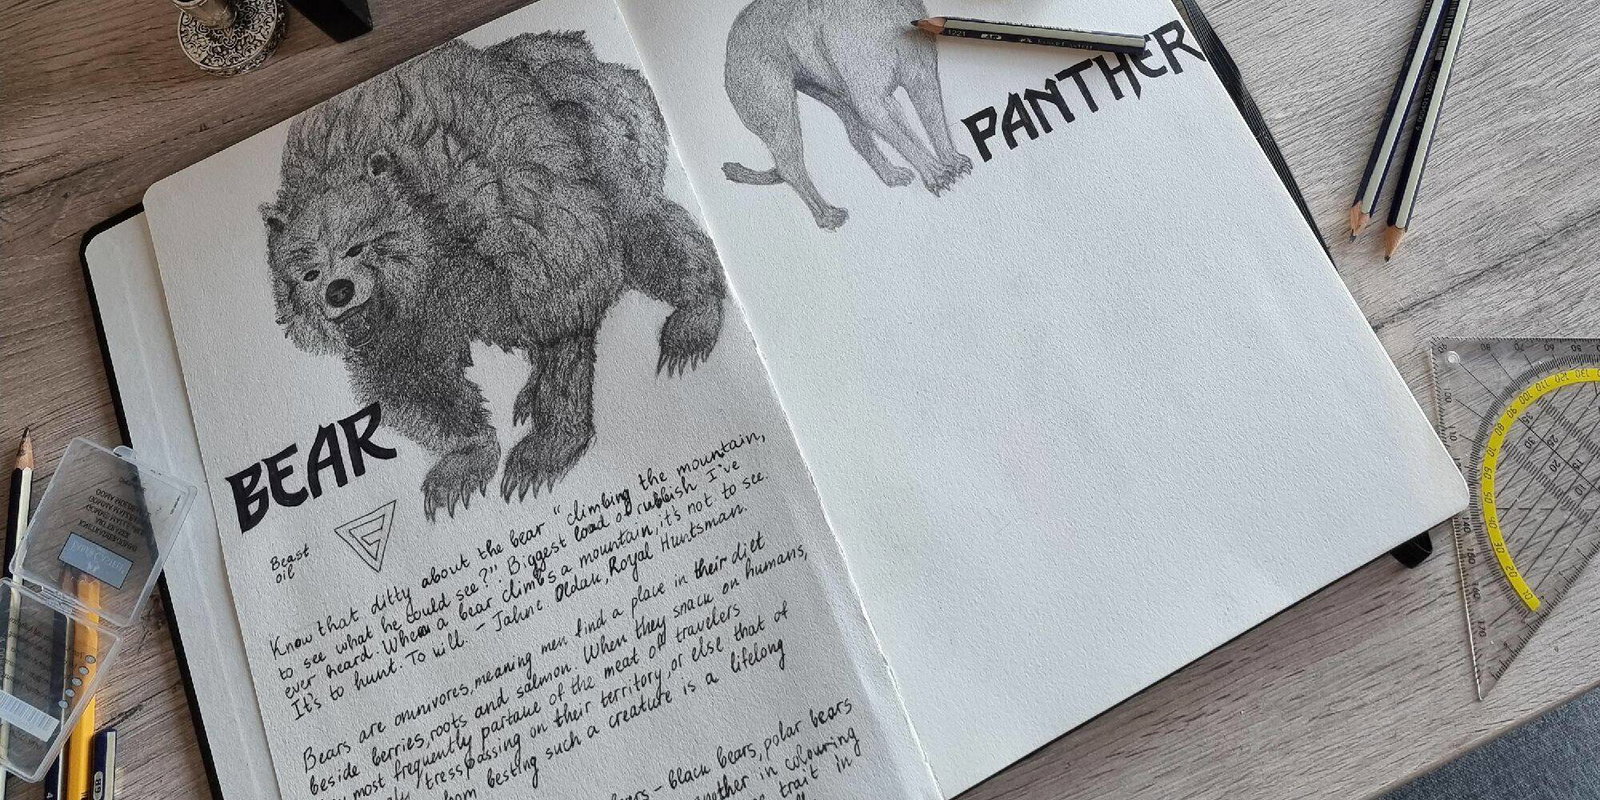 BEAR
Beast
oil
Know that ditty about the bear "climbing the mountain,
to see what he could see?" Biggest load of rubbish I've
ever heard. When a bear climbs a mountain, it's not to see.
It's to hunt. To kill. – Jahne Oldak, Royal Huntsman.
Bears are omnivores, meaning men find a place in their diet
beside berries, roots and salmon. When they snack on humans,
most frequently partake of the meat of travelers
tresspassing on their territory, or else that of
besting such a creature is a lifelong
– black bears, polar bears
another in colouring
trait in
PANTHER
1221